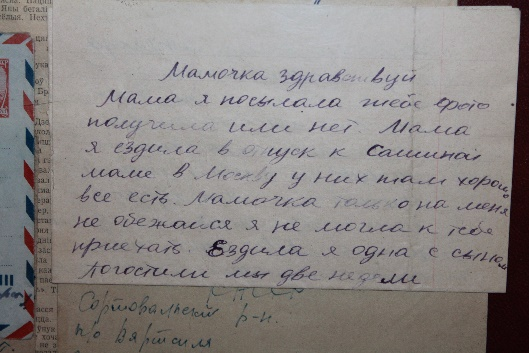 Мамочка здравствуй
Мама я посылала тебе фото
получила или нет. Мама
я ездила в отпуск к Сашиной
маме в Москву у них там хорошо
все есть. Мамочка только на меня
не обежайся я не могла к тебе
приехать. Ездила я одна с сыном
погостили мы две недели
Сортовальский р-н.
п/о Вяртсиля